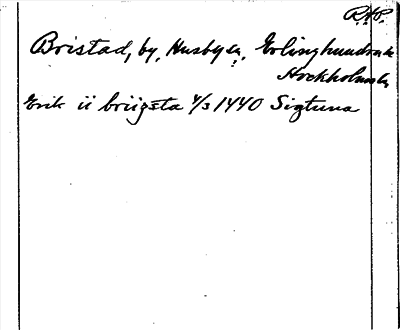 RAP.
Bristad, by, Husby sn, Erlinghundra hd
Stockholms län
Erik ii briigsta 4/3 1440 Sigtuna